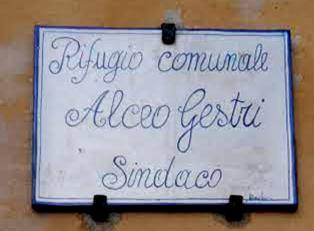 Rifugio comunale
Alceo Gestri
Sindaco